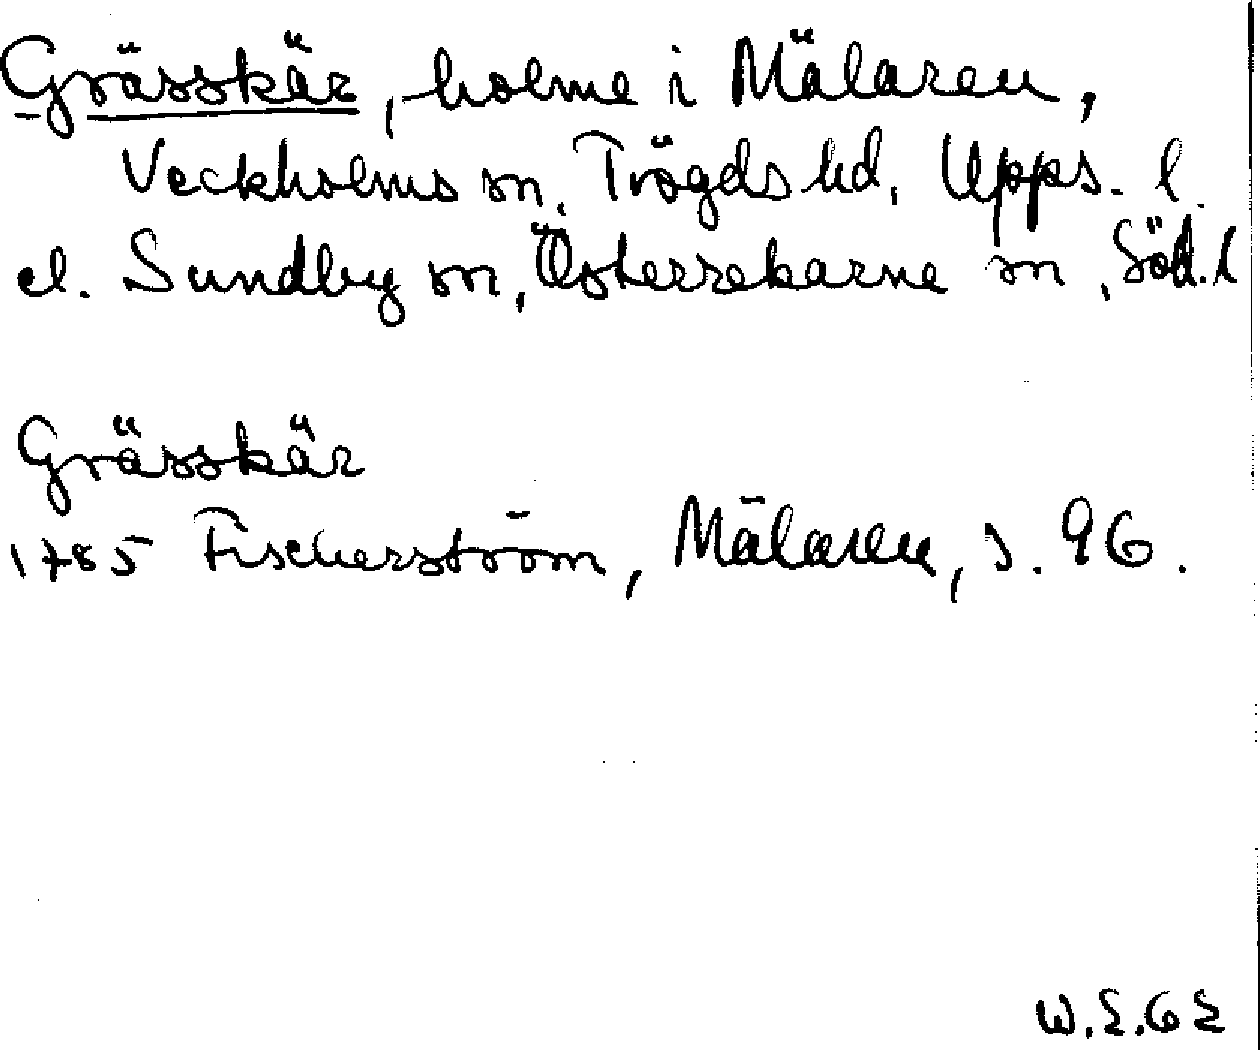 Grässkär, holme i Mälaren,
Veckholms sn, Trögds hd, Upps. l.
el. Sundby sn, Österrekarne sn, Söd. l
Grässkär
1785 Fischerström, Mälaren, s. 96.
W.S.62